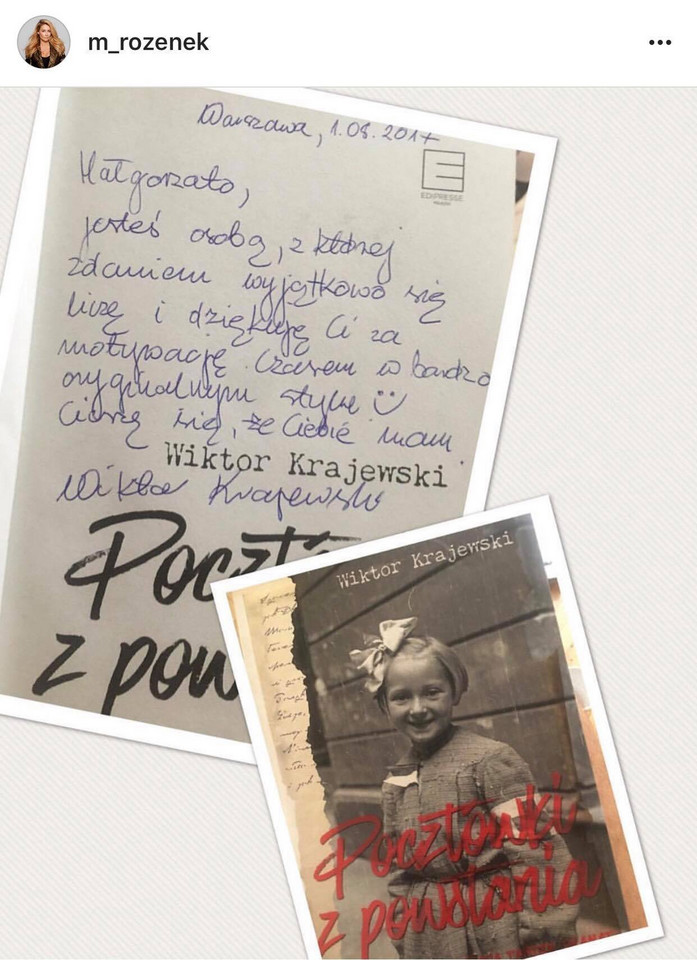 m_rozenek
Warszawa, 1.08.2017
EDIPRESSE
Małgorzato,
jesteś osobą, z której
zdaniem wyjątkowo się
liczę i dziękuję Ci za
motywację. Czasem w bardzo
oryginalnym stylu
Cieszę się, że Ciebie mam.
Wiktor Krajewski
Wiktor Krajewski
Poczt
z pow
Wiktor Krajewski
Pocztówki
z powstania